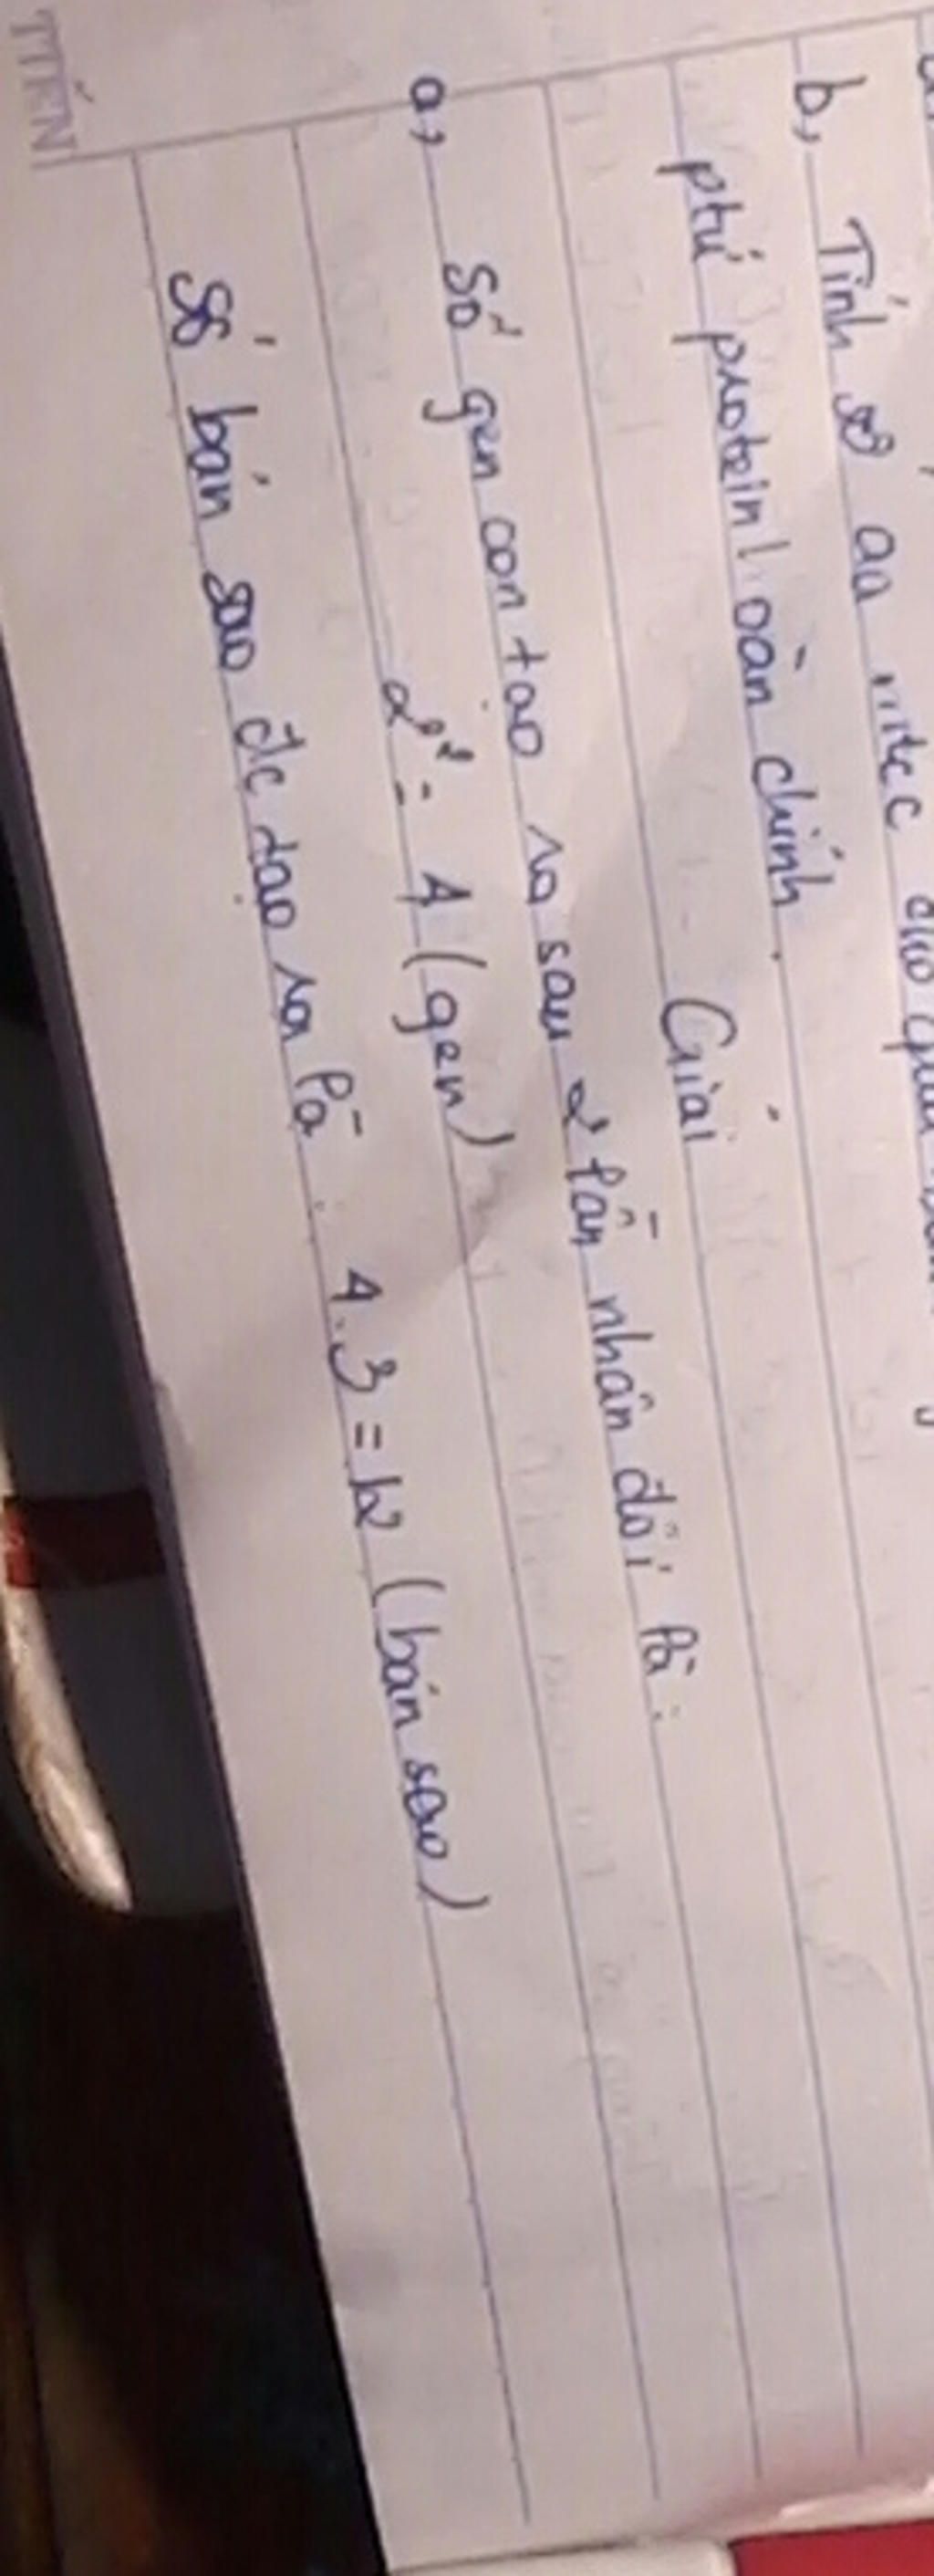 b, Tính số aa mtcc cho quá
phtử protein hoàn chỉnh.
Giải
a, Số gen con tạo ra sau 2 lần nhân đôi là:
2² = 4 (gen)
Số bản sao đc tạo ra là: 4.3 = 12 (bản sao)
TIẾN